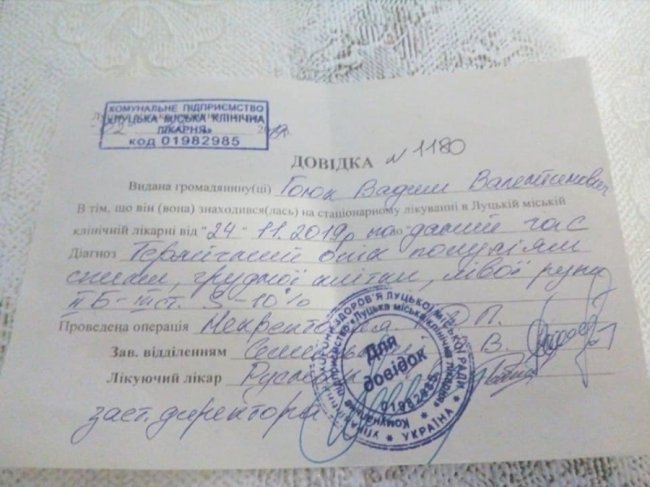 КОМУНАЛЬНЕ ПІДПРИЄМСТВО
«ЛУЦЬКА МІСЬКА КЛІНІЧНА
ЛІКАРНЯ»
код 01982985
ДОВІДКА N 1180
Видана громадянину(ці) Гоюк Вадим Валентинович
В тім, що він (вона) знаходився(лась) на стаціонарному лікуванні в Луцькій міській
клінічній лікарні від "24" 11.2019р по на даний час
Діагноз Термічний опік полум'ям
спини, грудної клітки, лівої руки
ІІ Б - ІІІ ст. S - 10%
Проведена операція
Зав. відділенням
Лікуючий лікар
заст. директора
Для
довідок
01982985
УКРАЇНА